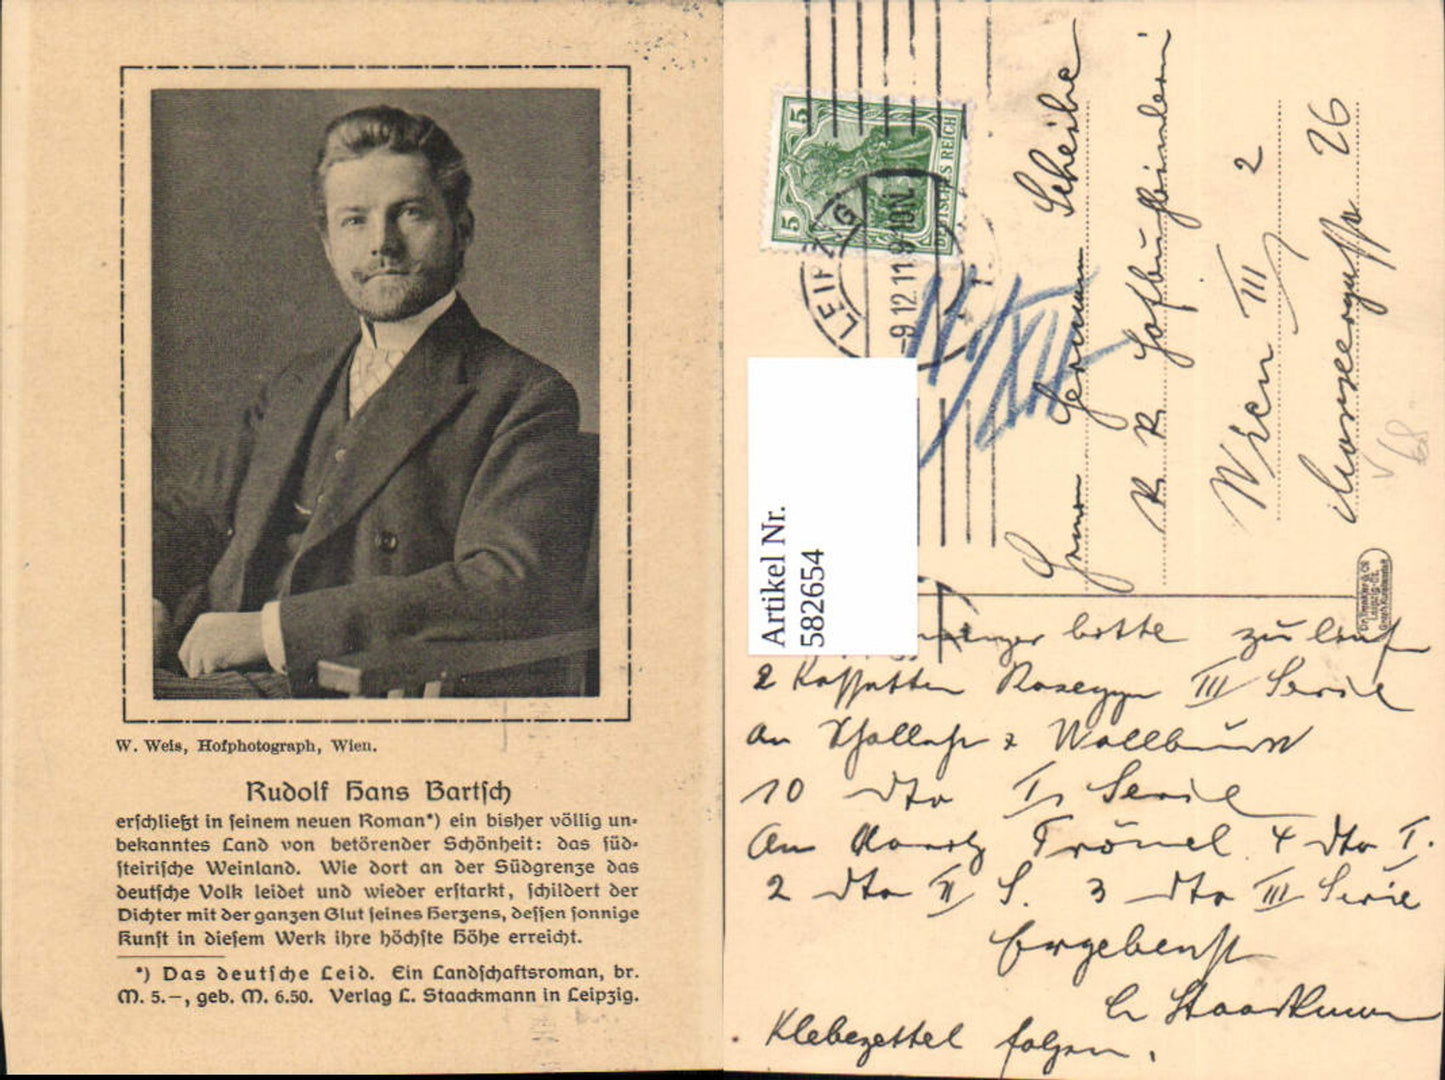 W. Weis, Hofphotograph, Wien.
Rudolf Hans Bartsch
erschließt in seinem neuen Roman*) ein bisher völlig un-
bekanntes Land von betörender Schönheit: das süd-
steirische Weinland. Wie dort an der Südgrenze das
deutsche Volk leidet und wieder erstarkt, schildert der
Dichter mit der ganzen Glut seines Herzens, dessen sonnige
Kunst in diesem Werk ihre höchste Höhe erreicht.
*) Das deutsche Leid. Ein Landschaftsroman, br.
M. 5.—, geb. M. 6.50. Verlag L. Staackmann in Leipzig.
5 5
DEUTSCHES REICH
LEIPZIG
-9.12.11.9-10N.
1
Artikel Nr.
582654
Herrn Herman Scheibe
K. K. Hofbuchbinderei
Wien III 2
26
Dr. Trenkler & Co
Leipzig-St.
Graph. Kunstanstalt
bitte
2 Kassetten Rosegger III Serie
an & Wallbaum
10 dto I Serie
An Trömel 4 dto I.
2 dto II S. 3 dto III Serie
Ergebenst
L Staackmann
Klebezettel folgen.